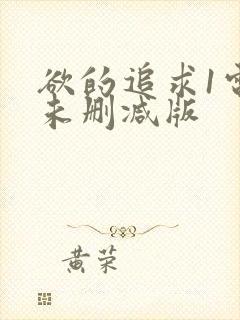 欲的追求1
未删减版
黄荣